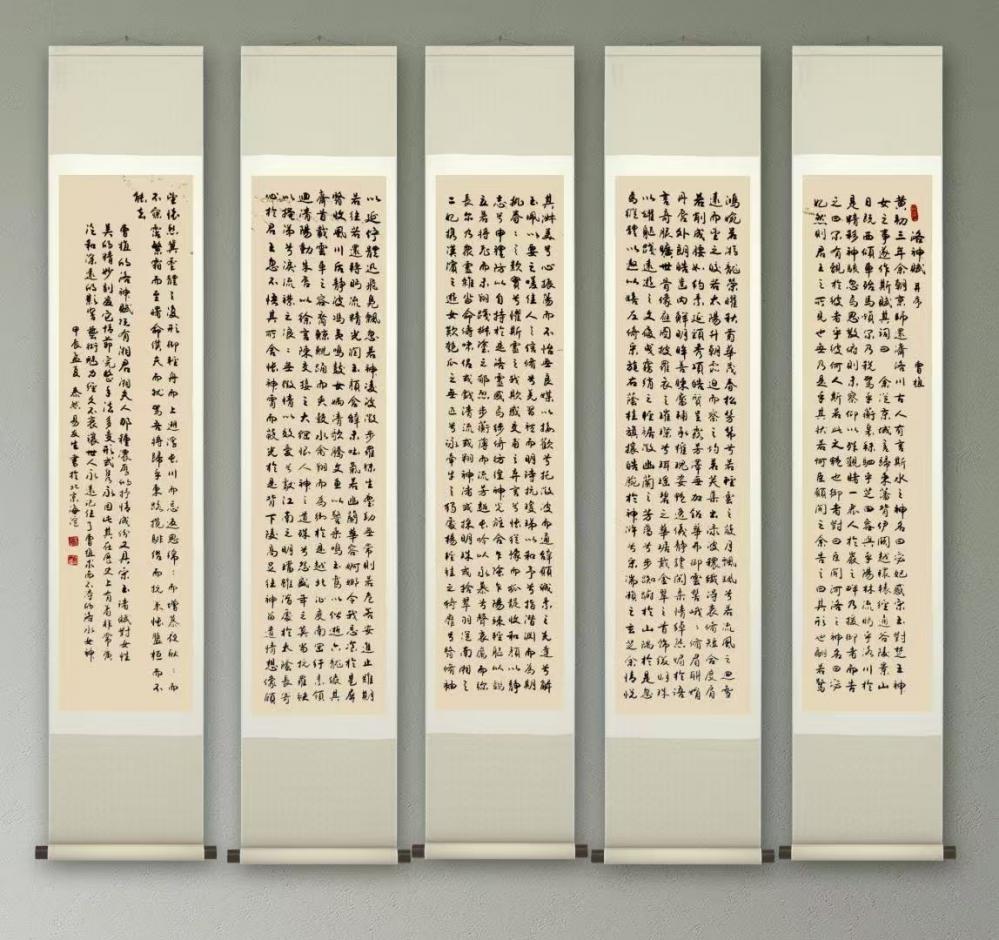 洛神賦 并序 曹植
黃初三年余朝京師還濟洛川古人有言斯水之神名曰宓妃感宋玉對楚王神
女之事遂作斯賦其詞曰 余從京域言歸東藩背伊闕越轘轅經通谷陵景山
日既西傾車殆馬煩爾乃稅駕乎蘅皋秣駟乎芝田容與乎陽林流眄乎洛川於
是精移神駭忽焉思散俯則未察仰以殊觀睹一麗人於巖之畔乃援御者而告
之曰爾有覿於彼者乎彼何人斯若此之艷也御者對曰臣聞河洛之神名曰宓
妃然則君王之所見也無乃是乎其狀若何臣願聞之余告之曰其形也翩若驚
鴻婉若游龍榮曜秋菊華茂春松髣髴兮若輕雲之蔽月飄飖兮若流風之迴雪
遠而望之皎若太陽升朝霞迫而察之灼若芙蕖出淥波穠纖得衷脩短合度肩
若削成腰如約素延頸秀項皓質呈露芳澤無加鉛華弗御雲髻峨々脩眉聯娟
丹脣外朗皓齒內鮮明眸善睞靨輔承權瑰姿艷逸儀靜體閑柔情綽態媚於語
言奇服曠世骨像應圖披羅衣之璀璨兮珥瑤碧之華琚戴金翠之首飾綴明珠
以耀軀踐遠遊之文履曳霧綃之輕裾微幽蘭之芳藹兮步踟躕於山隅於是忽
焉縱體以遨以嬉左倚采旄右蔭桂旗攘皓腕於神滸兮采湍瀨之玄芝余情悅
其淑美兮心振蕩而不怡無良媒以接歡兮托微波而通辭願誠素之先達兮解
玉佩以要之嗟佳人之信脩兮羌習禮而明詩抗瓊珶以和予兮指潛淵而為期
執眷々之款實兮懼斯靈之我欺感交甫之棄言兮悵猶豫而狐疑收和顏以靜
志兮申禮防以自持於是洛靈感焉徙倚彷徨神光離合乍陰乍陽竦輕軀以鶴
立若將飛而未翔踐椒塗之郁烈步蘅薄而流芳超長吟以永慕兮聲哀厲而彌
長爾乃衆靈雜沓命儔嘯侶或戲清流或翔神渚或採明珠或拾翠羽從南湘之
二妃攜漢濱之遊女歎匏瓜之無匹兮詠牽牛之獨處揚輕袿之猗靡兮翳脩袖
以延佇體迅飛鳧飄忽若神淩波微步羅襪生塵動無常則若危若安進止難期
若往若還轉眄流精光潤玉顏含辭未吐氣若幽蘭華容婀娜令我忘湌於是屏
翳收風川后靜波馮夷鳴鼓女媧清歌騰文魚以警乘鳴玉鸞以偕逝六龍儼其
齊首載雲車之容裔鯨鯢踊而夾轂水禽翔而為衛於是越北沚度南岡紆素領
迴清陽動朱唇以徐言陳交接之大綱恨人神之道殊兮怨盛年之莫當抗羅袂
以掩涕兮淚流襟之浪々無微情以效愛兮獻江南之明璫雖潛處於太陰長寄
心於君王忽不悟其所舍悵神宵而蔽光於是背下陵高足往神留遺情想像顧
望懷愁冀靈體之復形御輕舟而上遡浮長川而忘返思綿々而增慕夜耿々而
不寐霑繁霜而至曙命僕夫而就駕吾將歸乎東路攬騑轡而抗策悵盤桓而不
能去
曹植的洛神賦既有湘君湘夫人那種濃厚的抒情成份又具宋玉諸賦對女性
美的精妙刻畫它情節完整手法多變形式雋永因此其在歷史上有着非常廣
泛和深遠的影響藝術魅力經久不衰讓世人永遠記住了曹植求而不得的洛水女神
甲辰盛夏 泰然易友生書於北京海淀